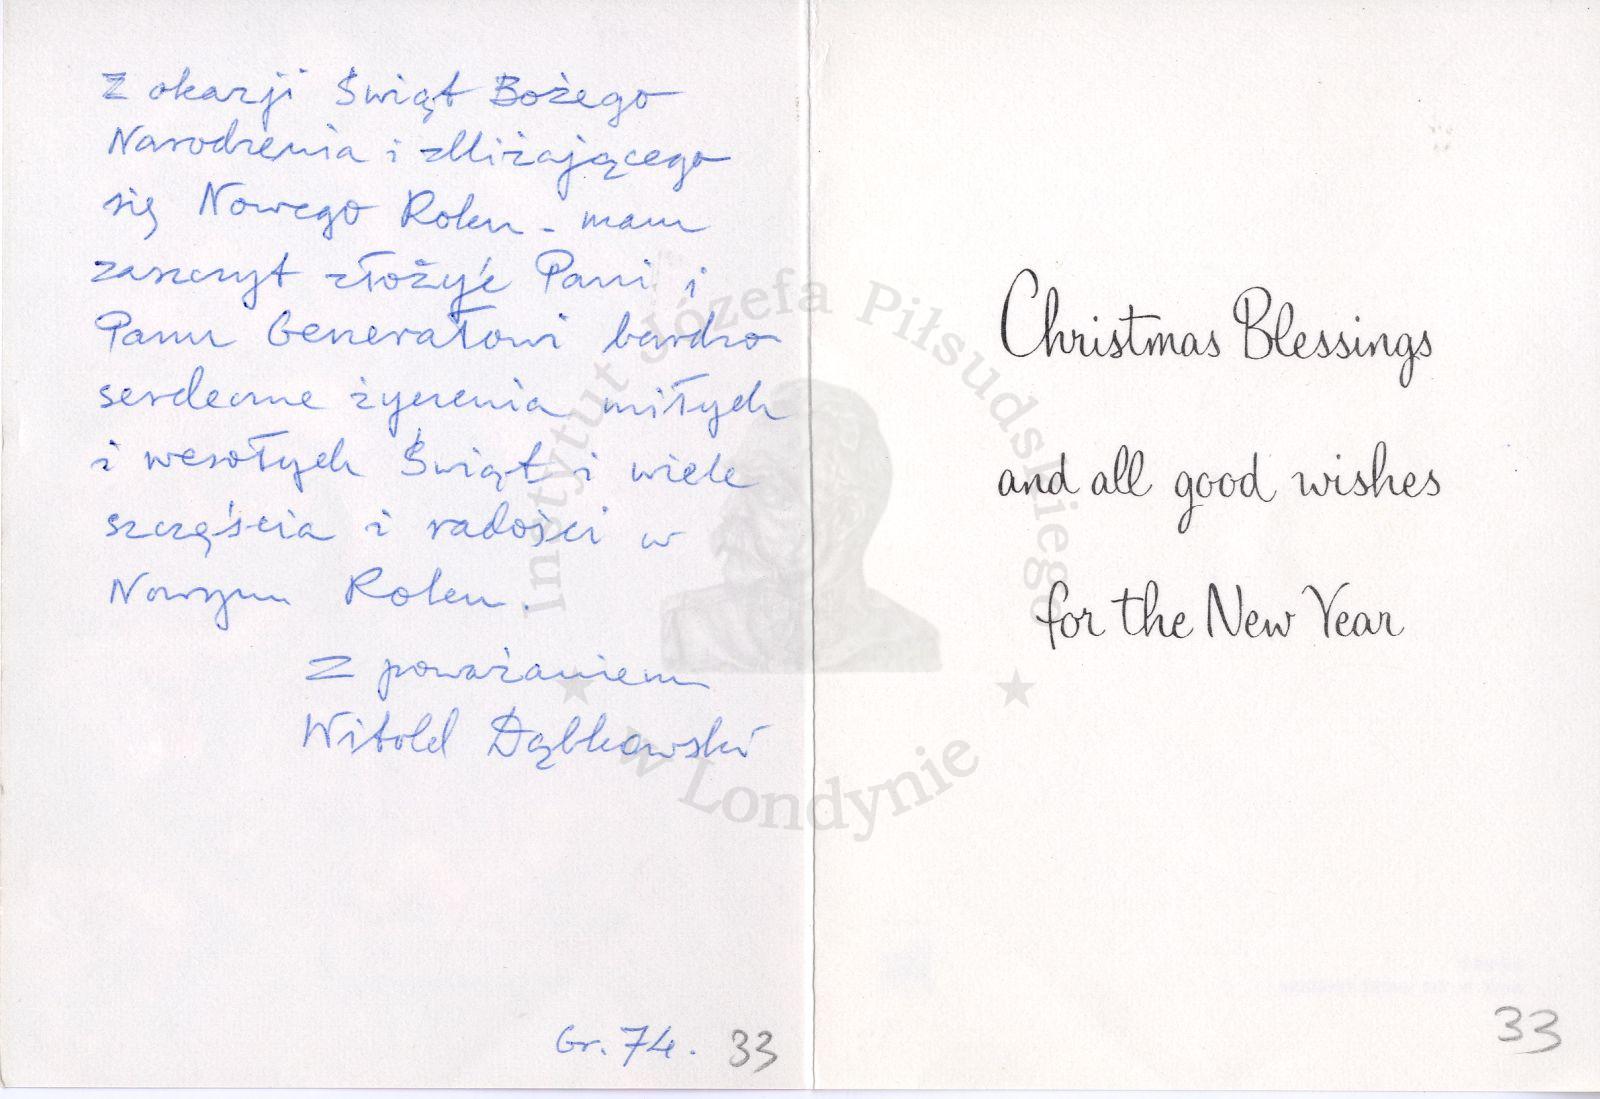 Z okazji Świąt Bożego
Narodzenia i zbliżającego
się Nowego Roku - mam
zaszczyt złożyć Pani i
Panu Generałowi bardzo
serdeczne życzenia miłych
i wesołych Świąt i wiele
szczęścia i radości w
Nowym Roku.
Z poważaniem
Witold Dąbkowski
Gr. 74.
33
Christmas Blessings
and all good wishes
for the New Year
33
Instytut Józefa Piłsudskiego
w Londynie